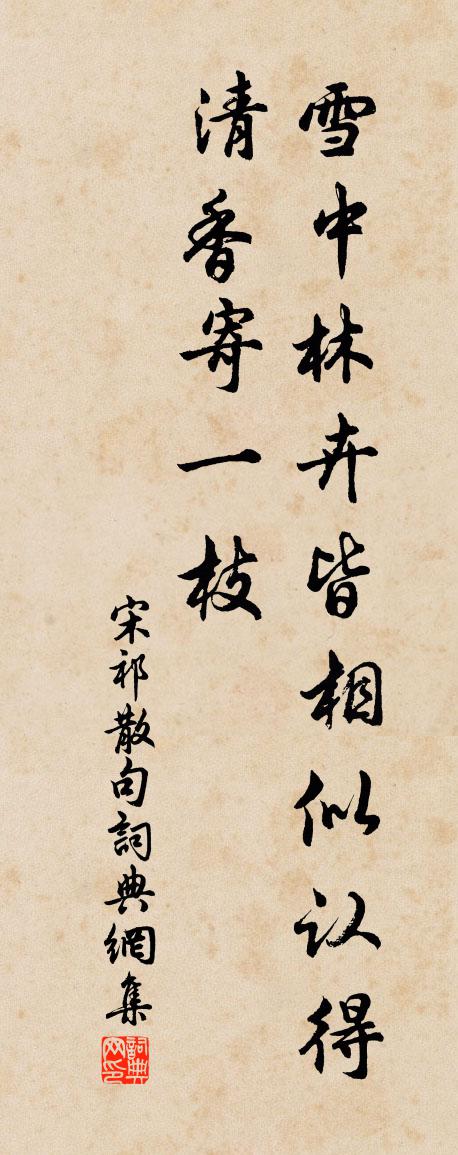 雪中林卉皆相似认得
清香寄一枝
宋祁散句詞典網集
詞典网印